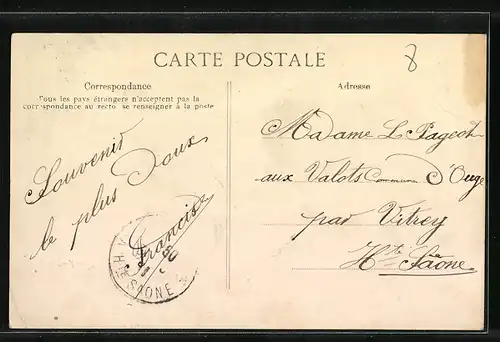 CARTE POSTALE
8
Correspondance
Tous les pays étrangers n'acceptent pas la
correspondance au recto se renseigner à la poste
Adresse
Souvenir
le plus doux
Francis
Hte SAONE
Madame L Pageot
aux Valots Commune d'Ouge
par Vitrey
Hte Saône